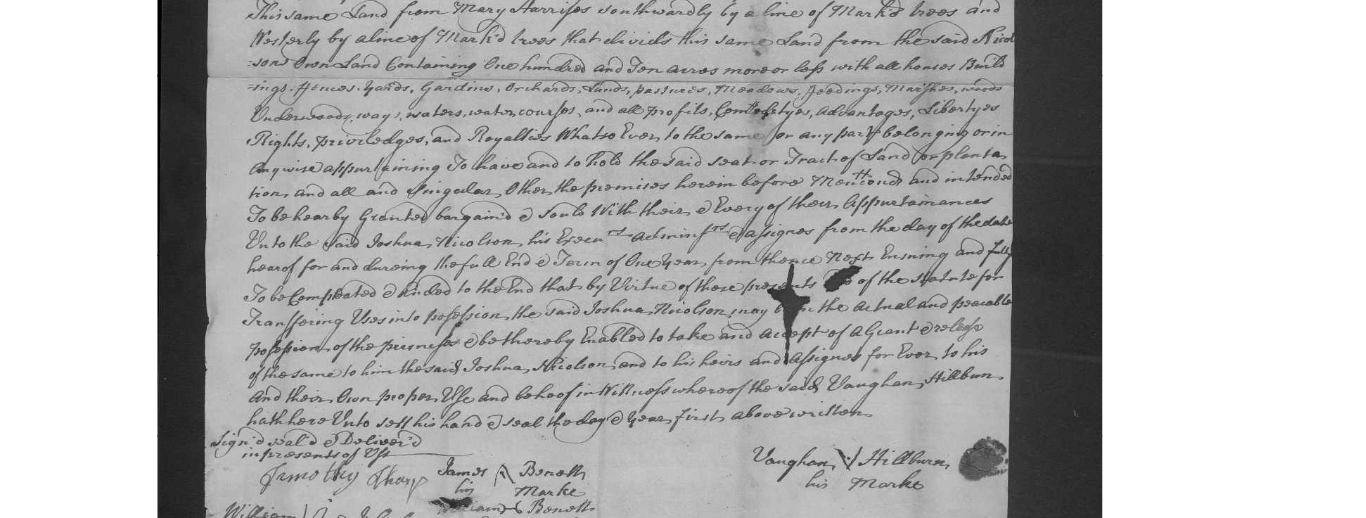 This same Land from Mary Harrises southwardly by a line of Mark'd trees and
Westerly by a line of Mark'd trees that divids this same Land from the said Nicol
=sons Own Land Containing One hundred and Ten acres more or less with all houses Build
=ings, fences, Yards, Gardins, Orchards, Lands, pastures, Meadows, feedings, Marshes, woods
Underwoods, ways, waters, water courses, and all profits, Comodetyes, advantages, Libertyes
Rights, priviledges, and Royallties Whatso Ever, to the same or any part belonging or in
Anywise appurtaining To have and to hold the said seat or Tract of Land or planta
tion, and all and singular, Other the premises herein before Mentiond and intended
To be hearby Granted bargain'd & Sould With their & Every of their Appurtainances
Unto the said Joshua Nicolson, his Execurs Adminisrs & assignes from the day of the date
hearof for and dureing the full End & Term of One Year from thence Next Ensuing and fully
To be Compleated & Ended to the End that by Virtue of these presents of the statute for
Transffering Uses into possession, the said Joshua Nicolson, may the Actual and peacable
possession, of the premises & be thereby Enabled to take and accept of a Grant & release
of the same to him the said Joshua Nicolson, and to his heirs and Assignes for Ever, to his
And their Own proper Use and behoof in Witness whereof the said Vaughan Hillbun
hath here Unto sett his hand & seal the day & Year first above written
Sign'd seal'd & Deliver'd
in presents of Us
Timothy Tharp James his Benett Marke
Vaughan Hillburn
his Marke
William Benett
William